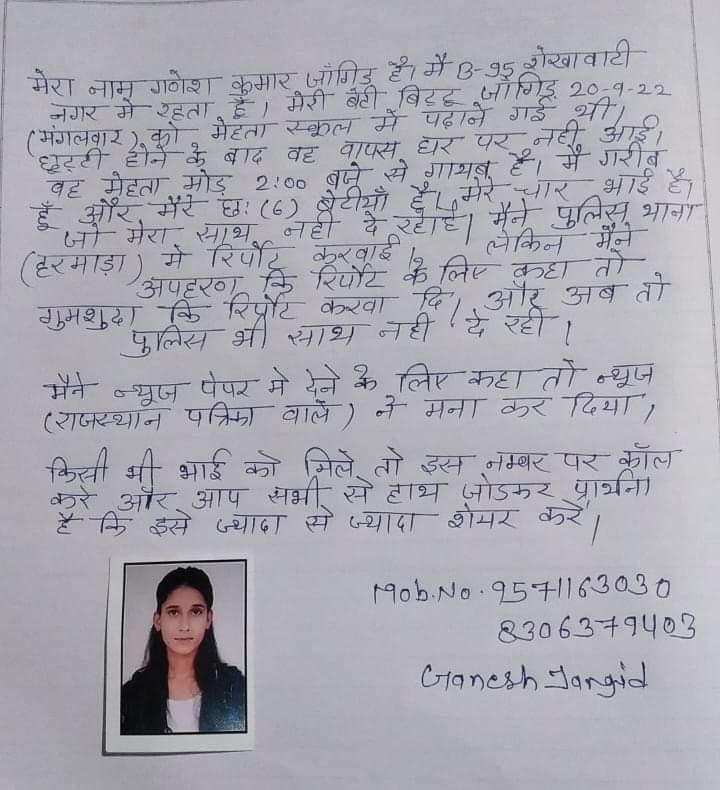 मेरा नाम गणेश कुमार जाँगिड है। मै B-95 शेखावाटी
नगर मे रहता हूँ। मेरी बेटी बिट्टू जाँगिड 20-9-22
(मंगलवार) को मेहता स्कूल में पढाने गई थी।
छुट्टी होने के बाद वह वापस घर पर नही आई।
वह मेहता मोड़ 2:00 बजे से गायब है। मै गरीब
हूँ और मेरे छः (6) बेटीयाँ है। मेरे चार भाई है।
जो मेरा साथ नही दे रहा है। मैने पुलिस थाना
(हरमाड़ा) मे रिर्पोट करवाई। लेकिन मैने
अपहरण कि रिर्पोट के लिए कहा तो
गुमशुदा कि रिर्पोट करवा दि। और अब तो
पुलिस भी साथ नही दे रही।
मैने न्यूज पेपर मे देने के लिए कहा तो न्यूज
(राजस्थान पत्रिका वाले) ने मना कर दिया।
किसी भी भाई को मिले तो इस नम्बर पर कॉल
करे और आप सभी से हाथ जोडकर प्रार्थना
है कि इसे ज्यादा से ज्यादा शेयर करें।
Mob.No. 9571163030
8306379403
Ganesh Jangid